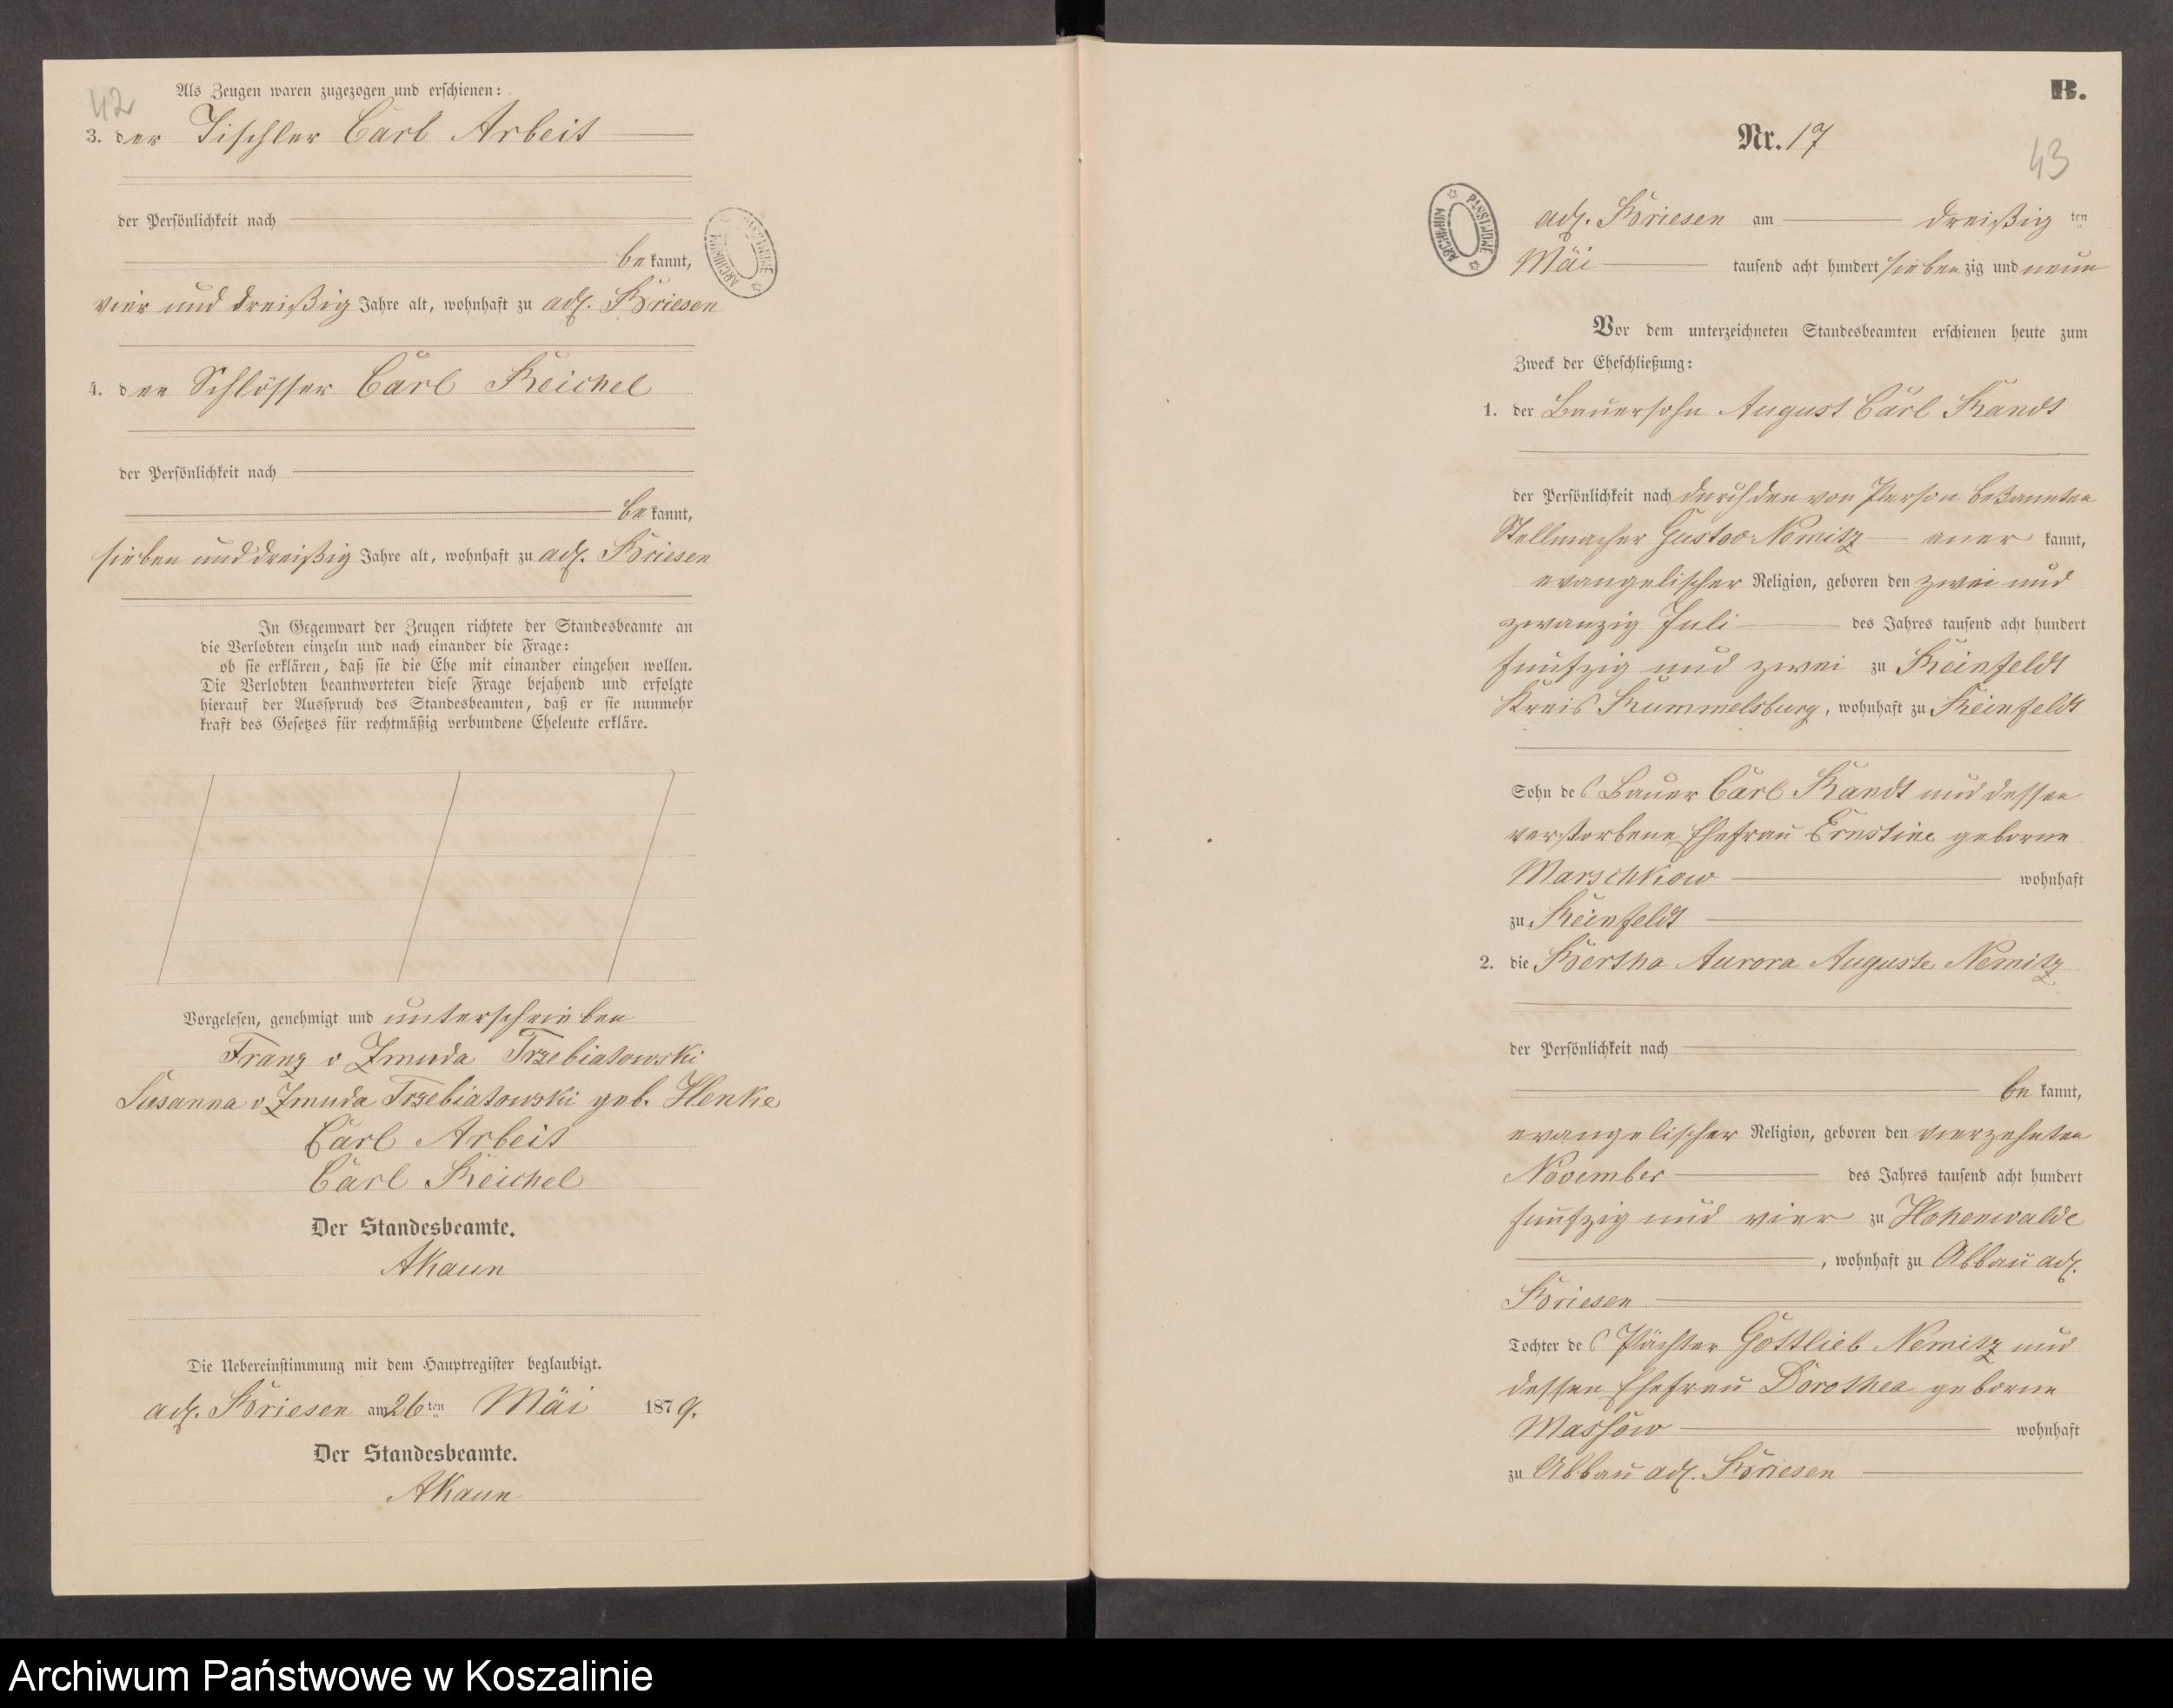 42
Als Zeugen waren zugezogen und erschienen:
3. der Tischler Carl Arbeit
der Persönlichkeit nach
bekannt,
vier und dreißig Jahre alt, wohnhaft zu adl. Briesen
4. der Schlosser Carl Reichel
der Persönlichkeit nach
bekannt,
sieben und dreißig Jahre alt, wohnhaft zu adl. Briesen
In Gegenwart der Zeugen richtete der Standesbeamte an
die Verlobten einzeln und nach einander die Frage:
ob sie erklären, daß sie die Ehe mit einander eingehen wollen.
Die Verlobten beantworteten diese Frage bejahend und erfolgte
hierauf der Ausspruch des Standesbeamten, daß er sie nunmehr
kraft des Gesetzes für rechtmäßig verbundene Eheleute erkläre.
Vorgelesen, genehmigt und unterschrieben
Franz v Zmuda Trzebiatowski
Susanna v Zmuda Trzebiatowski geb. Henke
Carl Arbeit
Carl Reichel
Der Standesbeamte.
AKaun
Die Uebereinstimmung mit dem Hauptregister beglaubigt.
adl. Briesen am 26ten Mai 1879.
Der Standesbeamte.
AKaun
ARCHIWUM PAŃSTWOWE
B.
Nr. 17
43
ARCHIWUM PAŃSTWOWE
adl. Briesen am dreißigten
Mai tausend acht hundert siebenzig und neun
Vor dem unterzeichneten Standesbeamten erschienen heute zum
Zweck der Eheschließung:
1. der Bauersohn August Carl Kandt
der Persönlichkeit nach durch den von Person bekannten
Stellmacher Gustav Nemitz anerkannt,
evangelischer Religion, geboren den zwei und
zwanzig Juli des Jahres tausend acht hundert
funfzig und zwei zu Reinfeldt
Kreis Rummelsburg, wohnhaft zu Reinfeldt
Sohn des Bauer Carl Kandt und dessen
verstorbene Ehefrau Ernstine geborne
Marschkow wohnhaft
zu Reinfeldt
2. die Bertha Aurora Auguste Nemitz
der Persönlichkeit nach
bekannt,
evangelischer Religion, geboren den vierzehnten
November des Jahres tausend acht hundert
funfzig und vier zu Hohenwalde
, wohnhaft zu Abbau adl.
Briesen
Tochter des Pächter Gottlieb Nemitz und
dessen Ehefrau Dorothea geborne
Massow wohnhaft
zu Abbau adl. Briesen
Archiwum Państwowe w Koszalinie